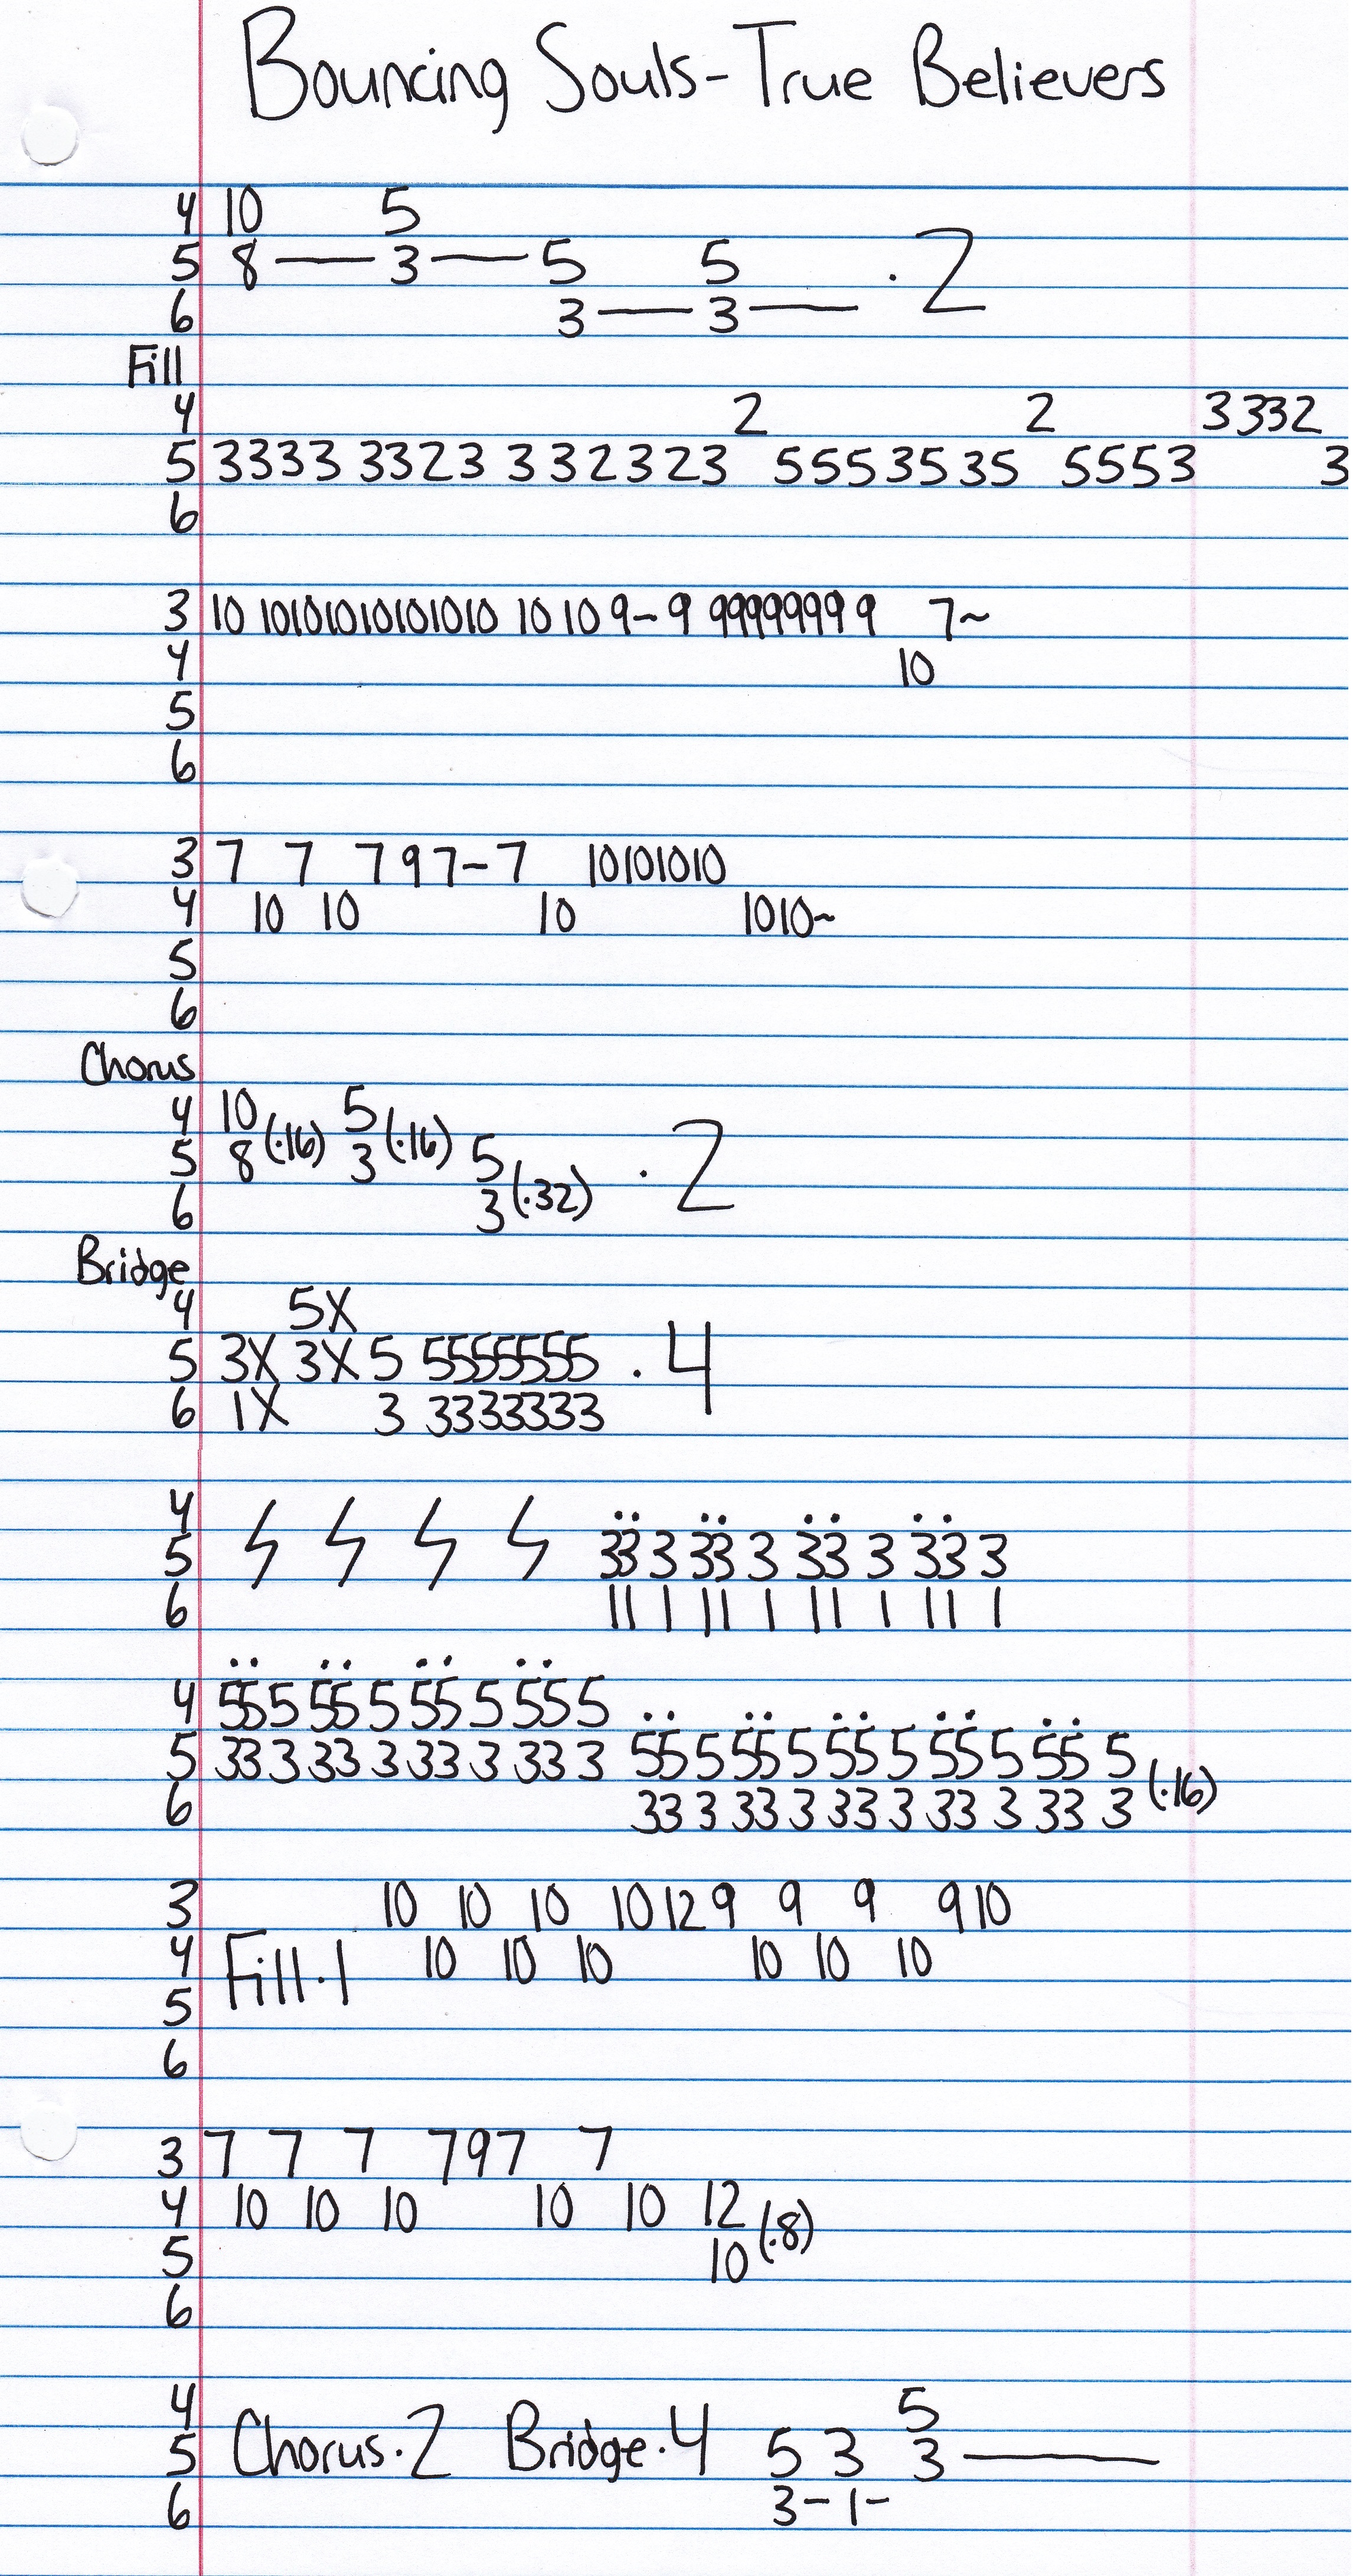 Bouncing Souls-True Believers
4 10 5
5 8 — 3 — 5 5 ·2
6 3 — 3 —
Fill
4 2 2 3332
5 3333 3323 3 323 23 5553535 5553 3
6
3 10 10101010101010 10 10 9-9 99999999 9 7~
4 10
5
6
3 7 7 7 9 7-7 10101010
4 10 10 10 1010~
5
6
Chorus
4 10 5
5 8 (·16) 3 (·16) 5 ·2
6 3 (·32)
Bridge
4 5X
5 3X 3X 5 5555555 ·4
6 1X 3 3333333
4
5 33 3 33 3 33 3 33 3
6 11 1 11 1 11 1 11 1
4 55 5 55 5 55 5 55 5
5 33 3 33 3 33 3 33 3 55 5 55 5 55 5 55 5 55 5 (·16)
6 33 3 33 3 33 3 33 3 33 3
3 10 10 10 10 12 9 9 9 9 10
4 Fill·1 10 10 10 10 10 10
5
6
3 7 7 7 7 9 7 7
4 10 10 10 10 10 12 (·8)
5 10
6
4 5
5 Chorus·2 Bridge·4 5 3 3 —
6 3- 1-